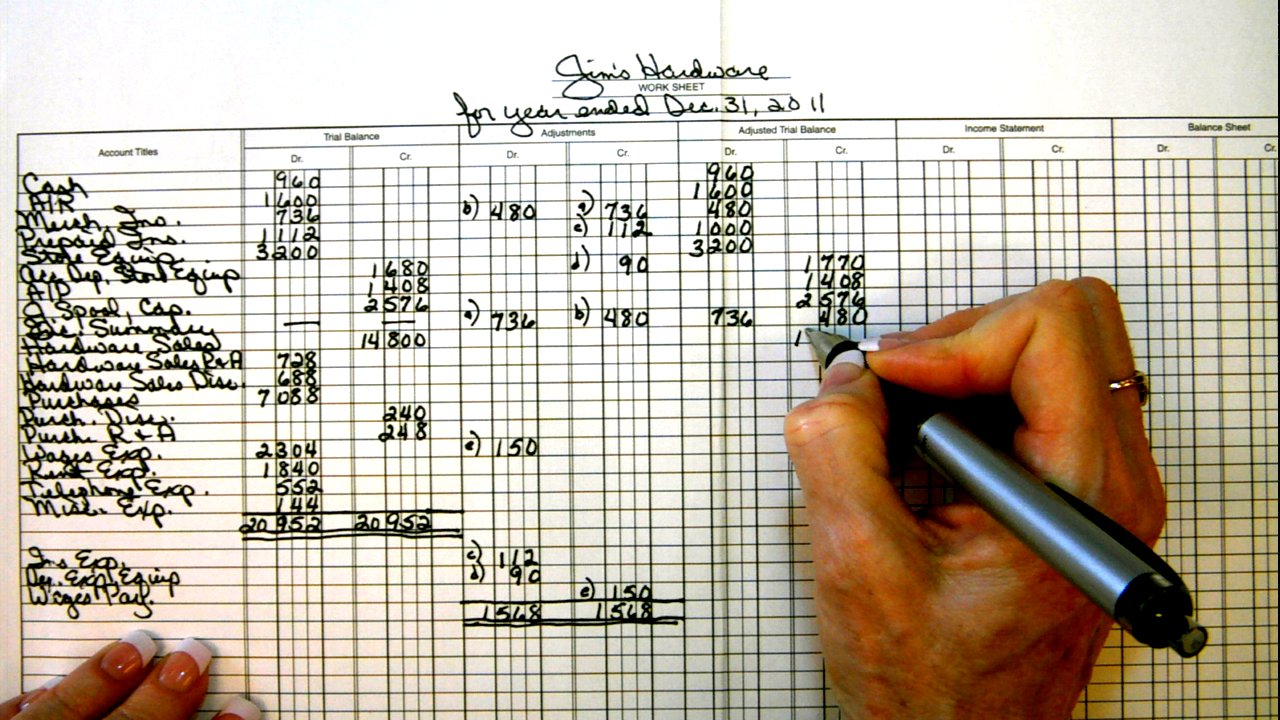 Jim's Hardware
WORK SHEET
for year ended Dec. 31, 2011
Account Titles Trial Balance Adjustments Adjusted Trial Balance Income Statement Balance Sheet
Dr. Cr. Dr. Cr. Dr. Cr. Dr. Cr. Dr. Cr.
Cash 960 960
A/R 1600 1600
Merch. Inv. 736 b) 480 a) 736 480
Prepaid Ins. 1112 c) 112 1000
Store Equip. 3200 3200
Acc. Dep. Store Equip 1680 d) 90 1770
A/P 1408 1408
Spool, Cap. 2576 2576
Summary — — a) 736 b) 480 736 480
Hardware Sales 14800 1
Hardware Sales R&A 728
Hardware Sales Disc. 688
Purchases 7088
Purch. Disc. 240
Purch. R & A 248
Wages Exp. 2304 e) 150
Rent Exp. 1840
Telephone Exp. 552
Misc. Exp. 144
20952 20952
Ins. Exp. c) 112
Dep. Exp. Equip d) 90
Wages Pay. e) 150
1568 1568